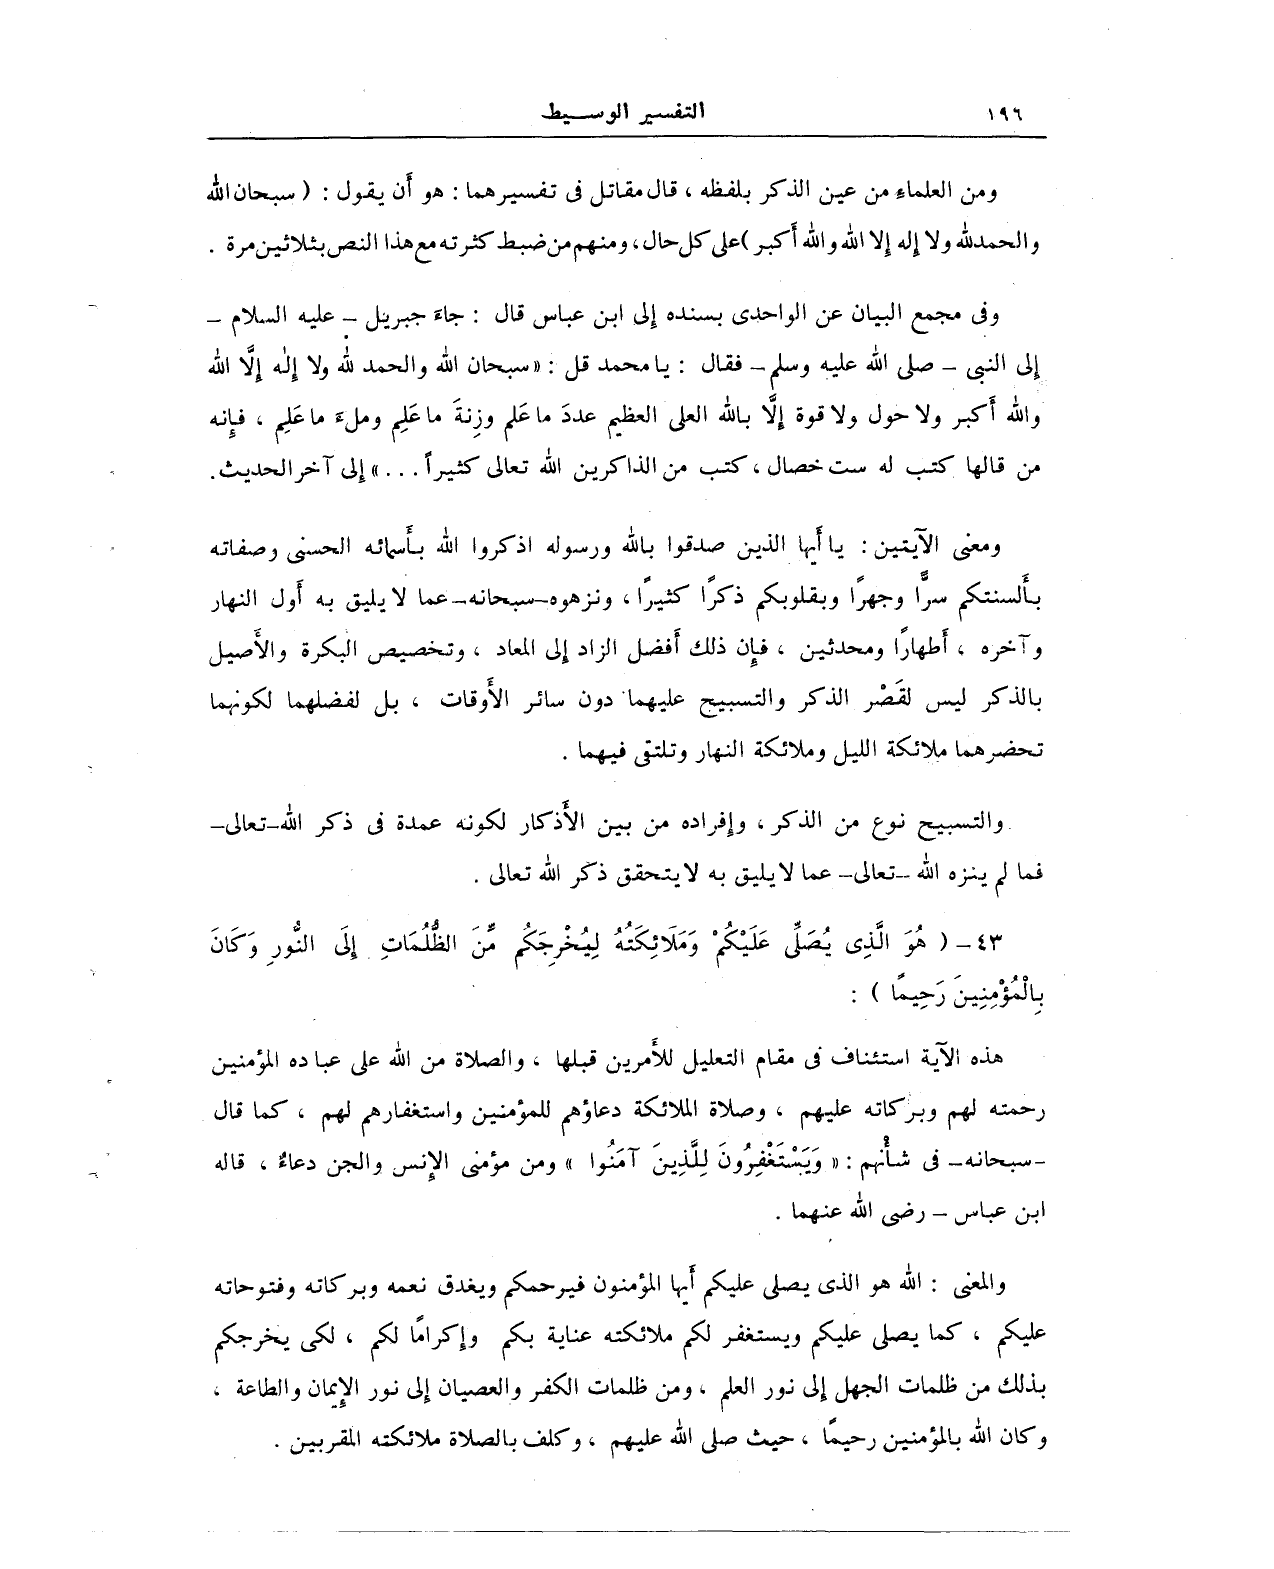 ١٩٦
التفسير الوسيط
ومن العلماء من عين الذكر بلفظه ، قال مقاتل فى تفسيرهما : هو أَن يقول : ( سبحان الله
والحمدلله ولا إله إلا الله والله أكبر ) على كل حال ، ومنهم من ضبط كثرته مع هذا النص بثلاثين مرة .
وفى مجمع البيان عن الواحدى بسنده إلى ابن عباس قال : جاءَ جبريل – عليه السلام –
إلى النبى – صلى الله عليه وسلم – فقال : يا محمد قل : « سبحان الله والحمد لله ولا إِلٰه إِلَّا الله
والله أَكبر ولا حول ولا قوة إِلَّا بالله العلى العظيم عددَ ما عَلم وزِنةَ ما عَلِم وملءَ ما عَلِم ، فإِنه
من قالها كتب له ست خصال ، كتب من الذاكرين الله تعالى كثيراً ... » إلى آخر الحديث .
ومعنى الآيتين : يا أَيها الذين صدقوا بالله ورسوله اذكروا الله بأَسمائه الحسنى وصفاته
بأَلسنتكم سرًّا وجهرًا وبقلوبكم ذكرًا كثيرًا ، ونزهوه – سبحانه – عما لا يليق به أَول النهار
وآخره ، أَطهارًا ومحدثين ، فإِن ذلك أَفضل الزاد إلى المعاد ، وتخصيص البكرة والأَصيل
بالذكر ليس لقَصْر الذكر والتسبيح عليهما دون سائر الأَوقات ، بل لفضلهما لكونهما
تحضرهما ملائكة الليل وملائكة النهار وتلتقى فيهما .
والتسبيح نوع من الذكر ، وإفراده من بين الأَذكار لكونه عمدة فى ذكر الله – تعالى –
فما لم ينزه الله – تعالى – عما لا يليق به لا يتحقق ذكر الله تعالى .
٤٣ – ( هُوَ الَّذِى يُصَلِّى عَلَيْكُمْ وَمَلَائِكَتُهُ لِيُخْرِجَكُم مِّنَ الظُّلُمَاتِ إِلَى النُّورِ وَكَانَ
بِالْمُؤْمِنِينَ رَحِيمًا ) :
هذه الآية استئناف فى مقام التعليل للأَمرين قبلها ، والصلاة من الله على عباده المؤمنين
رحمته لهم وبركاته عليهم ، وصلاة الملائكة دعاؤهم للمؤمنين واستغفارهم لهم ، كما قال
– سبحانه – فى شأْنهم : « وَيَسْتَغْفِرُونَ لِلَّذِينَ آمَنُوا » ومن مؤمنى الإنس والجن دعاءٌ ، قاله
ابن عباس – رضى الله عنهما .
والمعنى : الله هو الذى يصلى عليكم أَيها المؤمنون فيرحمكم ويغدق نعمه وبركاته وفتوحاته
عليكم ، كما يصلى عليكم ويستغفر لكم ملائكته عناية بكم وإكرامًا لكم ، لكى يخرجكم
بذلك من ظلمات الجهل إلى نور العلم ، ومن ظلمات الكفر والعصيان إلى نور الإيمان والطاعة ،
وكان الله بالمؤمنين رحيمًا ، حيث صلى الله عليهم ، وكلف بالصلاة ملائكته المقربين .